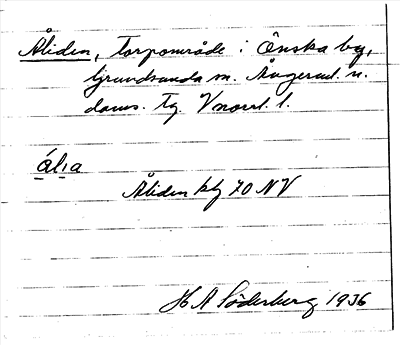 Åliden, torpområde i Önska by,
Grundsunda sn. Ångerml. n.
doms. tg. Vnorrl. l.
ál̥ıa
Åliden kbl 70 NV
H A Söderberg 1936